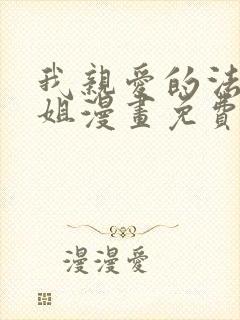 我親愛的法
姐漫畫免費
漫漫愛